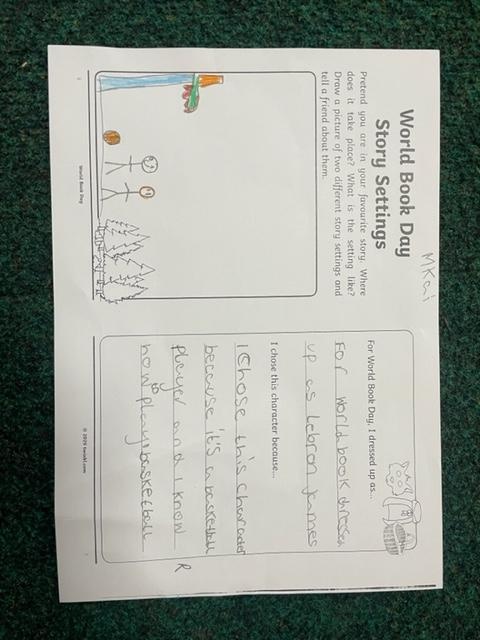 MKai
World Book Day
Story Settings
Pretend you are in your favourite story. Where
does it take place? What is the setting like?
Draw a picture of two different story settings and
tell a friend about them.
World Book Day
For World Book Day, I dressed up as...
For world book dressed
up as Lebron james
I chose this character because...
I chose this character
because it's a basketball
player and i know
how to play basketball
R
© 2020 twinkl.com